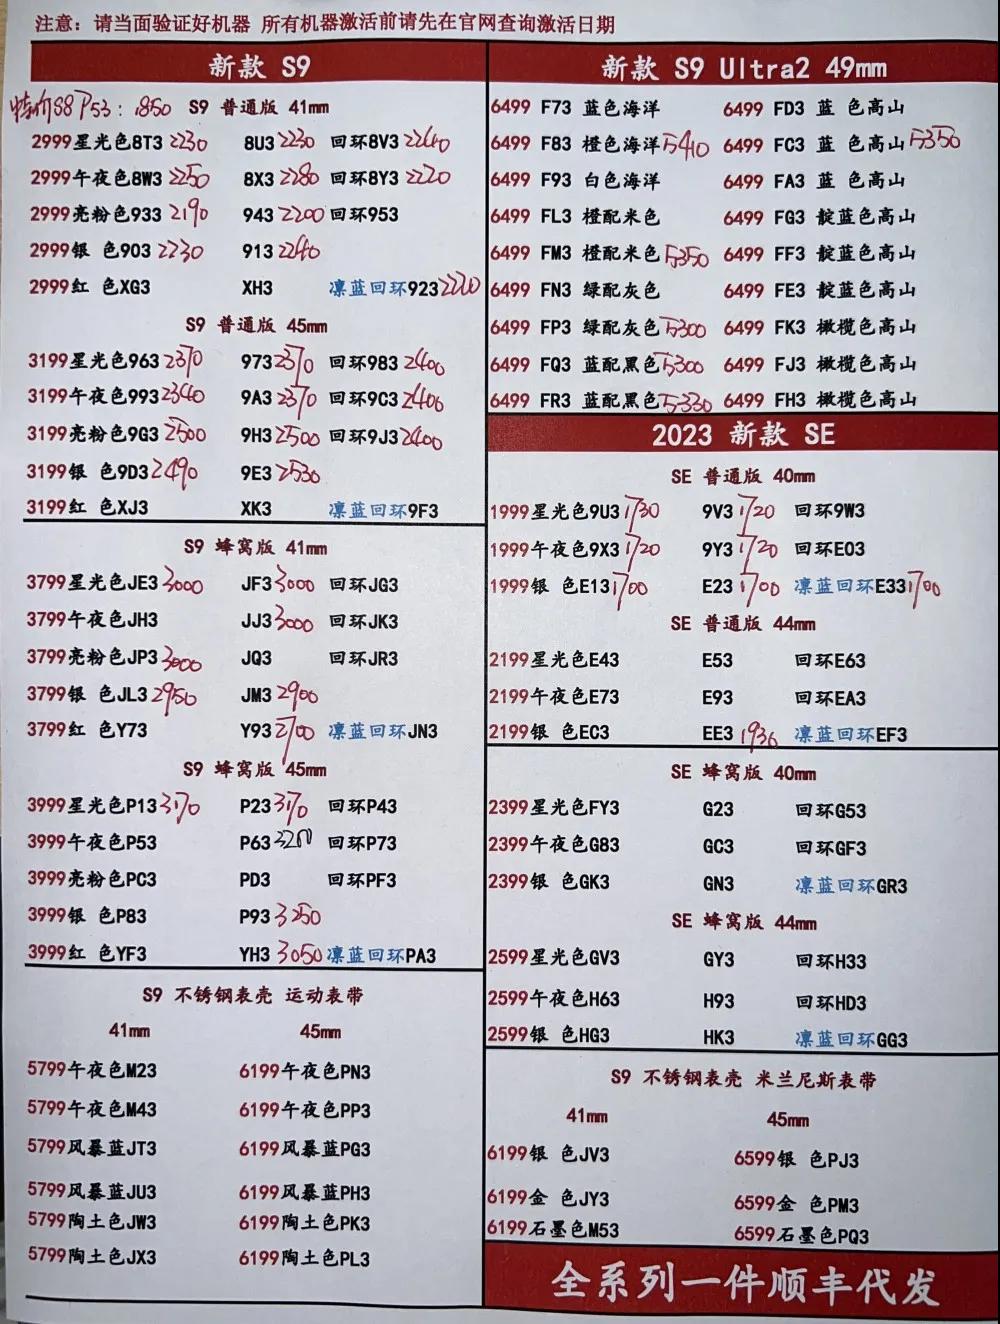 注意：请当面验证好机器 所有机器激活前请先在官网查询激活日期
新款 S9
特价S8 P53：1850 S9 普通版 41mm
2999星光色8T3 2230 8U3 2230 回环8V3 2240
2999午夜色8W3 2250 8X3 2280 回环8Y3 2220
2999亮粉色933 2190 943 2200 回环953
2999银 色903 2230 913 2240
2999红 色XG3 XH3 凛蓝回环923 2220
S9 普通版 45mm
3199星光色963 2370 973 2370 回环983 2400
3199午夜色993 2340 9A3 2370 回环9C3 2400
3199亮粉色9G3 2500 9H3 2500 回环9J3 2400
3199银 色9D3 2490 9E3 2530
3199红 色XJ3 XK3 凛蓝回环9F3
S9 蜂窝版 41mm
3799星光色JE3 3000 JF3 3000 回环JG3
3799午夜色JH3 JJ3 3000 回环JK3
3799亮粉色JP3 3000 JQ3 回环JR3
3799银 色JL3 2950 JM3 2900
3799红 色Y73 Y93 2700 凛蓝回环JN3
S9 蜂窝版 45mm
3999星光色P13 3170 P23 3170 回环P43
3999午夜色P53 P63 3200 回环P73
3999亮粉色PC3 PD3 回环PF3
3999银 色P83 P93 3250
3999红 色YF3 YH3 3050 凛蓝回环PA3
S9 不锈钢表壳 运动表带
41mm 45mm
5799午夜色M23 6199午夜色PN3
5799午夜色M43 6199午夜色PP3
5799风暴蓝JT3 6199风暴蓝PG3
5799风暴蓝JU3 6199风暴蓝PH3
5799陶土色JW3 6199陶土色PK3
5799陶土色JX3 6199陶土色PL3
新款 S9 Ultra2 49mm
6499 F73 蓝色海洋 6499 FD3 蓝 色高山
6499 F83 橙色海洋 5410 6499 FC3 蓝 色高山 5350
6499 F93 白色海洋 6499 FA3 蓝 色高山
6499 FL3 橙配米色 6499 FG3 靛蓝色高山
6499 FM3 橙配米色 5350 6499 FF3 靛蓝色高山
6499 FN3 绿配灰色 6499 FE3 靛蓝色高山
6499 FP3 绿配灰色 5300 6499 FK3 橄榄色高山
6499 FQ3 蓝配黑色 5300 6499 FJ3 橄榄色高山
6499 FR3 蓝配黑色 5330 6499 FH3 橄榄色高山
2023 新款 SE
SE 普通版 40mm
1999星光色9U3 1730 9V3 1720 回环9W3
1999午夜色9X3 1720 9Y3 1720 回环E03
1999银 色E13 1700 E23 1700 凛蓝回环E33 1700
SE 普通版 44mm
2199星光色E43 E53 回环E63
2199午夜色E73 E93 回环EA3
2199银 色EC3 EE3 1936 凛蓝回环EF3
SE 蜂窝版 40mm
2399星光色FY3 G23 回环G53
2399午夜色G83 GC3 回环GF3
2399银 色GK3 GN3 凛蓝回环GR3
SE 蜂窝版 44mm
2599星光色GV3 GY3 回环H33
2599午夜色H63 H93 回环HD3
2599银 色HG3 HK3 凛蓝回环GG3
S9 不锈钢表壳 米兰尼斯表带
41mm 45mm
6199银 色JV3 6599银 色PJ3
6199金 色JY3 6599金 色PM3
6199石墨色M53 6599石墨色PQ3
全系列一件顺丰代发